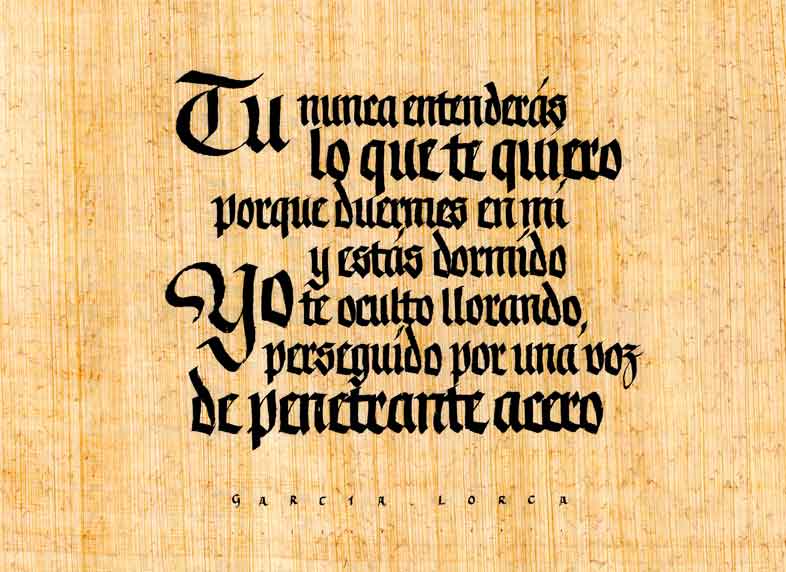 Tu nunca entenderás
lo que te quiero
porque duermes en mí
y estás dormido
Yo te oculto llorando,
perseguido por una voz
de penetrante acero
GARCÍA LORCA